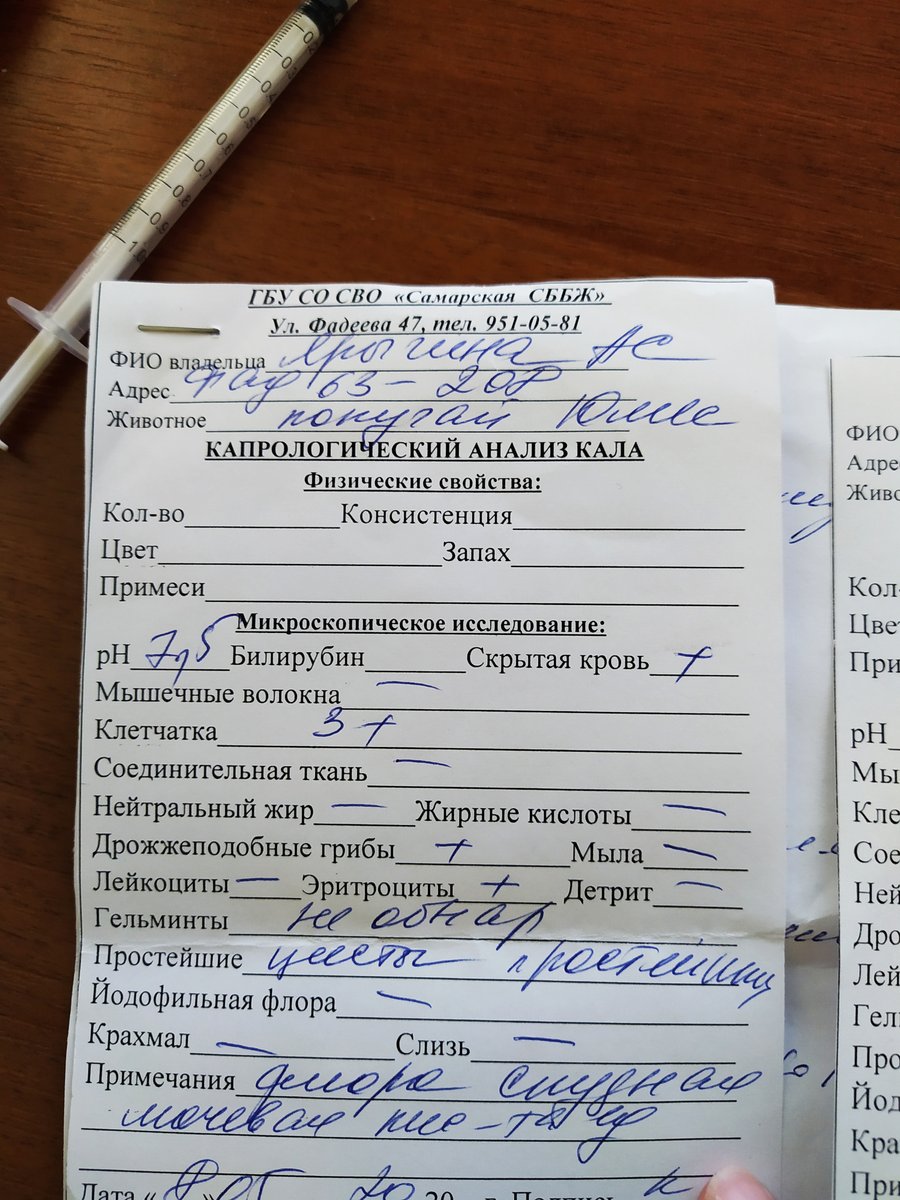 0.2
0.3
0.4
0.5
0.6
0.7
0.8
0.9
1.0
ГБУ СО СВО «Самарская СББЖ»
Ул. Фадеева 47, тел. 951-05-81
ФИО владельца Ярыгина АС
Адрес Фад 63 – 208
Животное попугай Юлис
КАПРОЛОГИЧЕСКИЙ АНАЛИЗ КАЛА
Физические свойства:
Кол-во Консистенция
Цвет Запах
Примеси
Микроскопическое исследование:
pH 7,5 Билирубин Скрытая кровь +
Мышечные волокна —
Клетчатка 3+
Соединительная ткань —
Нейтральный жир — Жирные кислоты —
Дрожжеподобные грибы + Мыла —
Лейкоциты — Эритроциты + Детрит —
Гельминты не обнар
Простейшие цисты простейших
Йодофильная флора —
Крахмал — Слизь —
Примечания флора скудная
мочевая кис-та ед
Дата « 20 г. Подпись
ФИО
Адре
Живо
Кол-
Цве
При
pH
Мы
Кле
Сое
Ней
Дро
Лей
Гел
Про
Йод
Кра
При